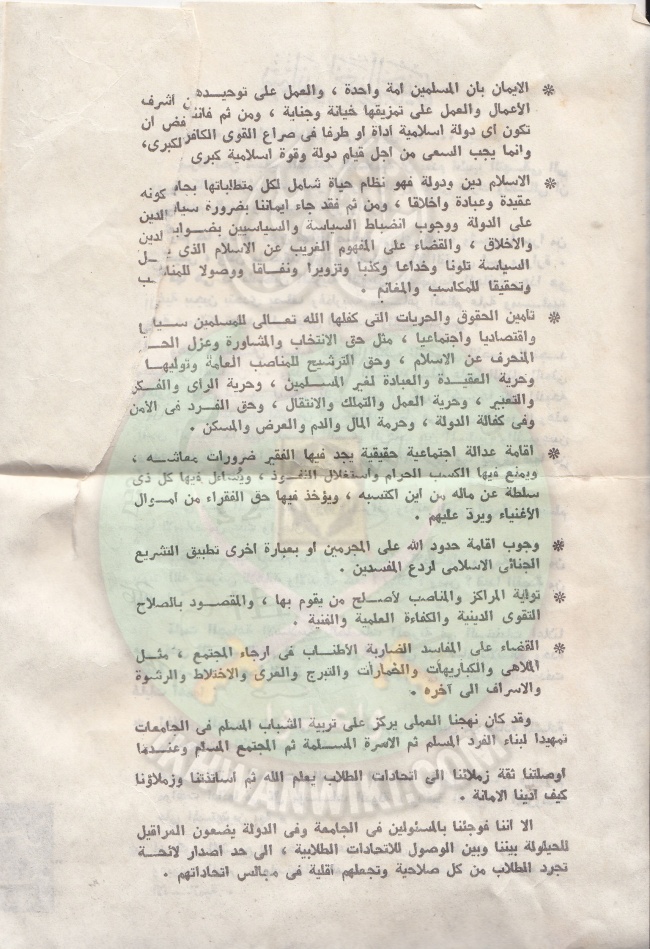 * الايمان بان المسلمين امة واحدة ، والعمل على توحيدهم من اشرف
الأعمال والعمل على تمزيقها خيانة وجناية ، ومن ثم فاننا نرفض ان
تكون اى دولة اسلامية اداة او طرفا فى صراع القوى الكافرة الكبرى،
وانما يجب السعى من اجل قيام دولة وقوة اسلامية كبرى
* الاسلام دين ودولة فهو نظام حياة شامل لكل متطلباتها بجانب كونه
عقيدة وعبادة واخلاقا ، ومن ثم فقد جاء ايماننا بضرورة سيادة الدين
على الدولة ووجوب انضباط السياسة والسياسيين بضوابط الدين
والاخلاق ، والقضاء على المفهوم الغريب عن الاسلام الذى
السياسة تلونا وخداعا وكذبا وتزويرا ونفاقا ووصولا للمناصب
وتحقيقا للمكاسب والمغانم .
* تأمين الحقوق والحريات التى كفلها الله تعالى للمسلمين سياسيا
واقتصاديا واجتماعيا ، مثل حق الانتخاب والمشاورة وعزل الحاكم
المنحرف عن الاسلام ، وحق الترشيح للمناصب العامة وتوليها
وحرية العقيدة والعبادة لغير المسلمين ، وحرية الراى والفكر
والتعبير ، وحرية العمل والتملك والانتقال ، وحق الفرد فى الأمن
وفى كفالة الدولة ، وحرمة المال والدم والعرض والمسكن .
* اقامة عدالة اجتماعية حقيقية يجد فيها الفقير ضرورات معاشه ،
ويمنع فيها الكسب الحرام واستغلال النفوذ ، ويُساءل فيها كل ذى
سلطة عن ماله من اين اكتسبه ، ويؤخذ فيها حق الفقراء من اموال
الأغنياء ويرد عليهم .
* وجوب اقامة حدود الله على المجرمين او بعبارة اخرى تطبيق التشريع
الجنائى الاسلامى لردع المفسدين .
* تولية المراكز والمناصب لأصلح من يقوم بها ، والمقصود بالصلاح
التقوى الدينية والكفاءة العلمية والفنية .
* القضاء على المفاسد الضاربة الأطناب فى ارجاء المجتمع ، مثل
الملاهى والكباريهات والخمارات والتبرج والعرى والاختلاط والرشوة
والاسراف الى آخره .
وقد كان نهجنا العملى يركز على تربية الشباب المسلم فى الجامعات
تمهيدا لبناء الفرد المسلم ثم الاسرة المسلمة ثم المجتمع المسلم وعندما
اوصلتنا ثقة زملائنا الى اتحادات الطلاب يعلم الله ثم أساتذتنا وزملاؤنا
كيف ادينا الامانة .
الا اننا فوجئنا بالمسئولين فى الجامعة وفى الدولة يضعون العراقيل
للحيلولة بيننا وبين الوصول للاتحادات الطلابية ، الى حد اصدار لائحة
تجرد الطلاب من كل صلاحية وتجعلهم أقلية فى مجالس اتحاداتهم .
IKHWANWIKI.COM